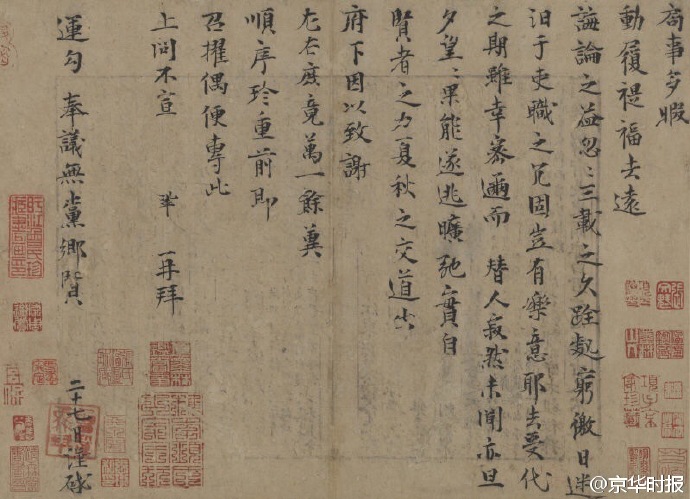 局事多暇
動履禔福去遠
誨論之益忽〻三載之久跧處窮徼日迷
汩于吏職之冗固豈有樂意耶去受代
之期雖幸密邇而替人寂然未聞亦旦
夕望〻果能遂逃曠弛實自
賢者之力夏秋之交道出
府下因以致謝
左右庶竟萬一餘冀
順序珍重前即
召擢偶便專此
上問不宣 鞏 再拜
運勾奉議無黨鄉賢
二十七日謹啟
@京华时报